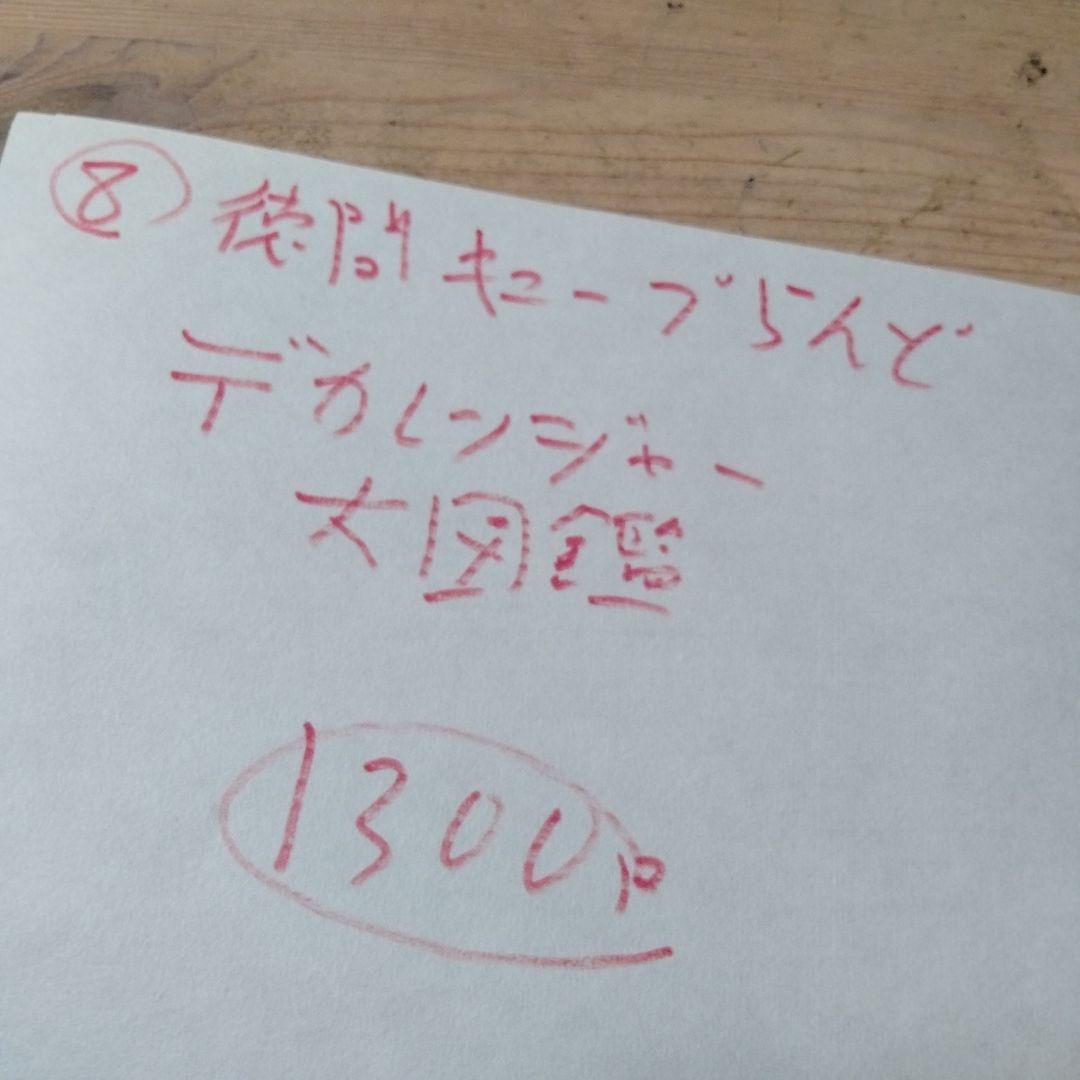 ⑧ 徳間キューブらんど
デカレンジャー
大図鑑
1300P